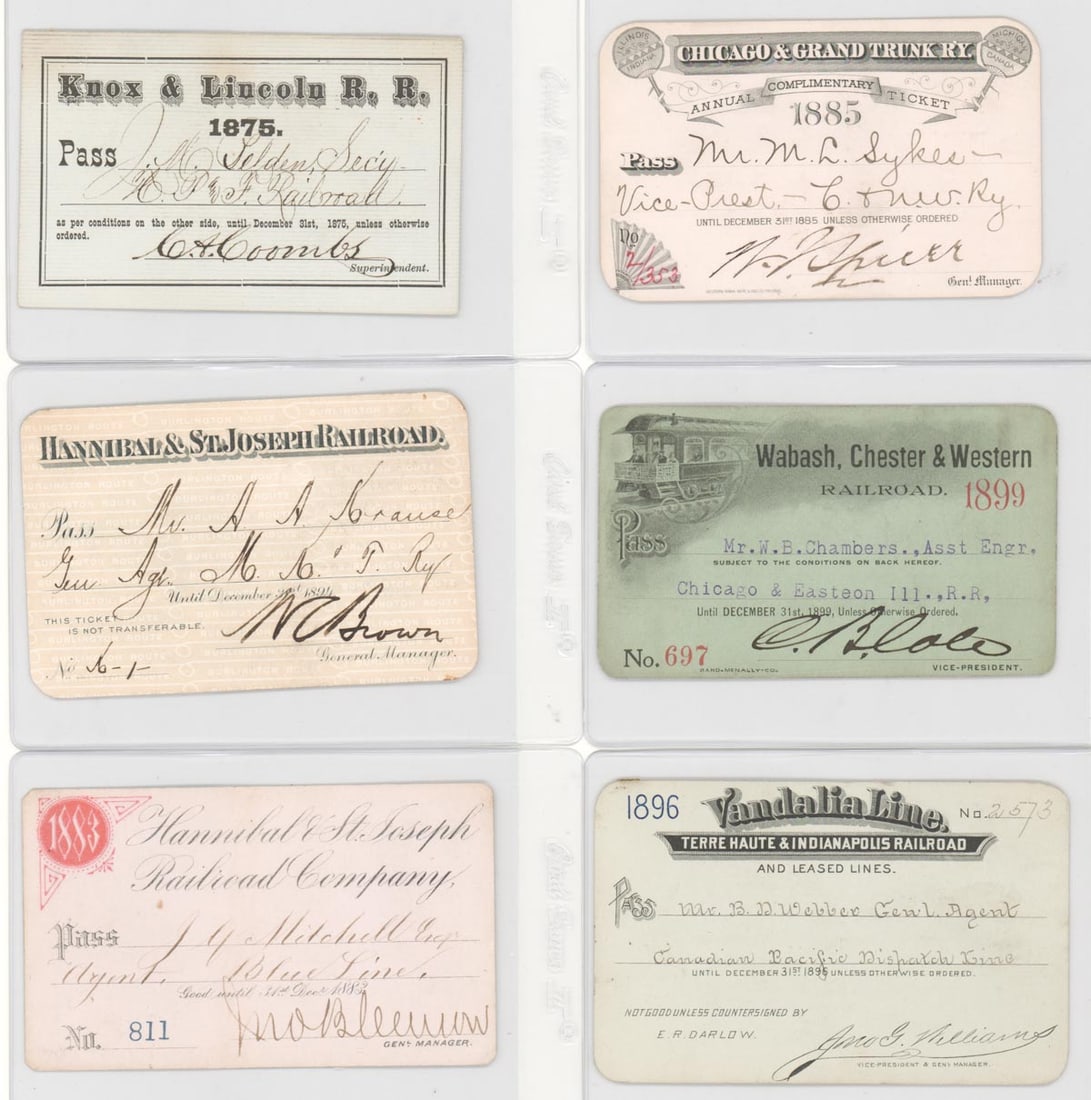 Knox & Lincoln R. R.
1875.
Pass J. M. Selden, Secy
Railroad
as per conditions on the other side, until December 31st, 1875, unless otherwise
ordered.
C. A. Coombs
Superintendent.
ILLINOIS
INDIANA
CHICAGO & GRAND TRUNK RY.
MICHIGAN
CANADA
ANNUAL COMPLIMENTARY TICKET
1885
Pass Mr. M. L. Sykes—
Vice-Prest.— C & N.W. Ry.
UNTIL DECEMBER 31ST 1885 UNLESS OTHERWISE ORDERED
No
21353
Genl. Manager.
HANNIBAL & ST. JOSEPH RAILROAD.
Pass Mr. A A Krause
Gen. Agt. M. K. & T. Ry
Until December 31st 1894
THIS TICKET
IS NOT TRANSFERABLE.
W C Brown
General Manager.
No
Wabash, Chester & Western
RAILROAD. 1899
Pass
Mr.W.B.Chambers.,Asst Engr,
SUBJECT TO THE CONDITIONS ON BACK HEREOF.
Chicago & Easteon Ill.,R.R,
Until DECEMBER 31st, 1899, Unless Otherwise Ordered.
C. B. Cole
No. 697
RAND-MCNALLY-CO.
VICE-PRESIDENT.
1883
Hannibal & St. Joseph
Railroad Company,
Pass J G Mitchell Esq
Agent, Blue Line.
Good until 31st Decr. 1883
No. 811
GENL. MANAGER.
1896 Vandalia Line. No. 2573
TERRE HAUTE & INDIANAPOLIS RAILROAD
AND LEASED LINES.
PASS Mr. B. D Webber Gen'l. Agent
Canadian Pacific Dispatch Line
UNTIL DECEMBER 31ST 1896 UNLESS OTHERWISE ORDERED.
NOT GOOD UNLESS COUNTERSIGNED BY
E. R. DARLOW.
Jno G. Williams
VICE-PRESIDENT & GENL MANAGER.